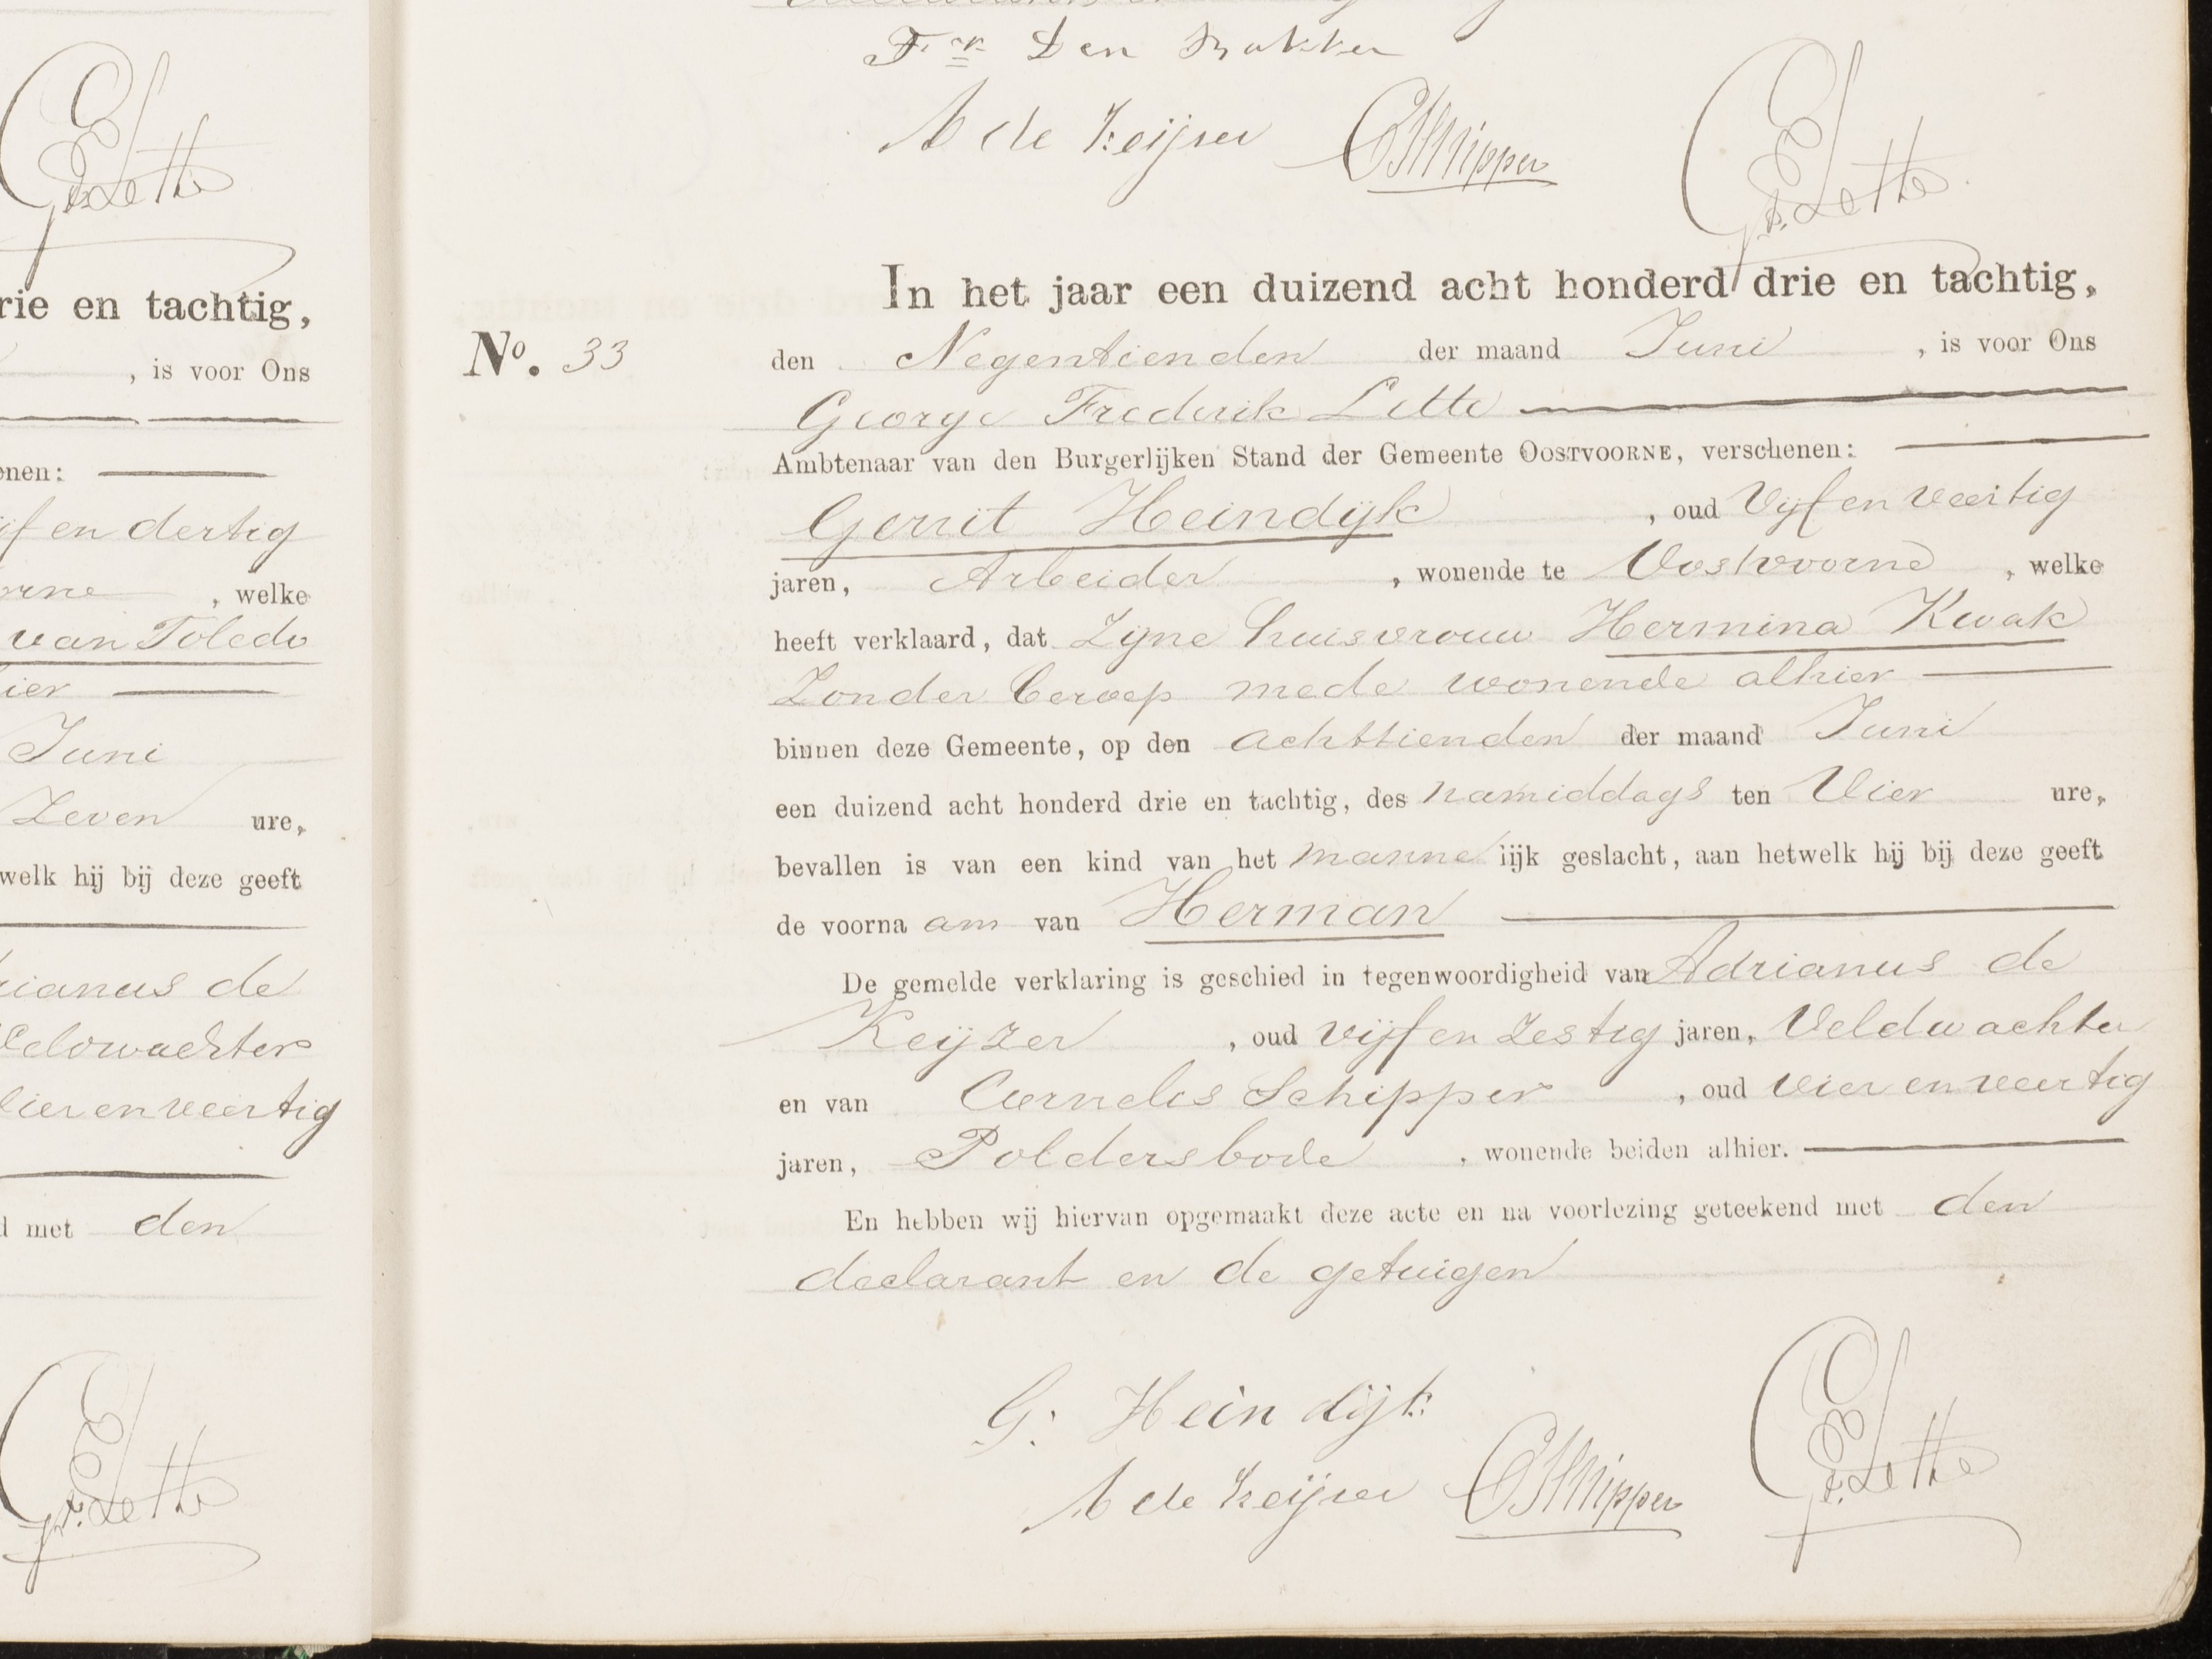 rie en tachtig,
, is voor Ons
enen:
ijf en dertig
orne , welke
van Toledo
ier
Juni
Zeven ure,
welk hij bij deze geeft
rianus de
Veldwachter
Vier en veertig
d met den
G.F. Lette
Fr Den Bakker
A de Keijser CSchipper G.F. Lette
In het jaar een duizend acht honderd drie en tachtig,
No. 33 den Negentienden der maand Juni , is voor Ons
George Frederik Lette
Ambtenaar van den Burgerlijken Stand der Gemeente OOSTVOORNE, verschenen:
Gerrit Heindijk , oud Vijf en veertig
jaren, Arbeider , wonende te Oostvoorne , welke
heeft verklaard, dat Zijne huisvrouw Hermina Kwak
Zonder beroep mede wonende alhier
binnen deze Gemeente, op den achttienden der maand Juni
een duizend acht honderd drie en tachtig, des namiddags ten Vier ure,
bevallen is van een kind van het manne lijk geslacht, aan hetwelk hij bij deze geeft
de voorna am van Herman
De gemelde verklaring is geschied in tegenwoordigheid van Adrianus de
Keijzer , oud vijf en Zestig jaren, Veldwachter
en van Cornelis Schipper , oud vier en veertig
jaren, Poldersbode , wonende beiden alhier.
En hebben wij hiervan opgemaakt deze acte en na voorlezing geteekend met den
declarant en de getuigen
G. Heindijk
A de Keijser CSchipper G.F. Lette